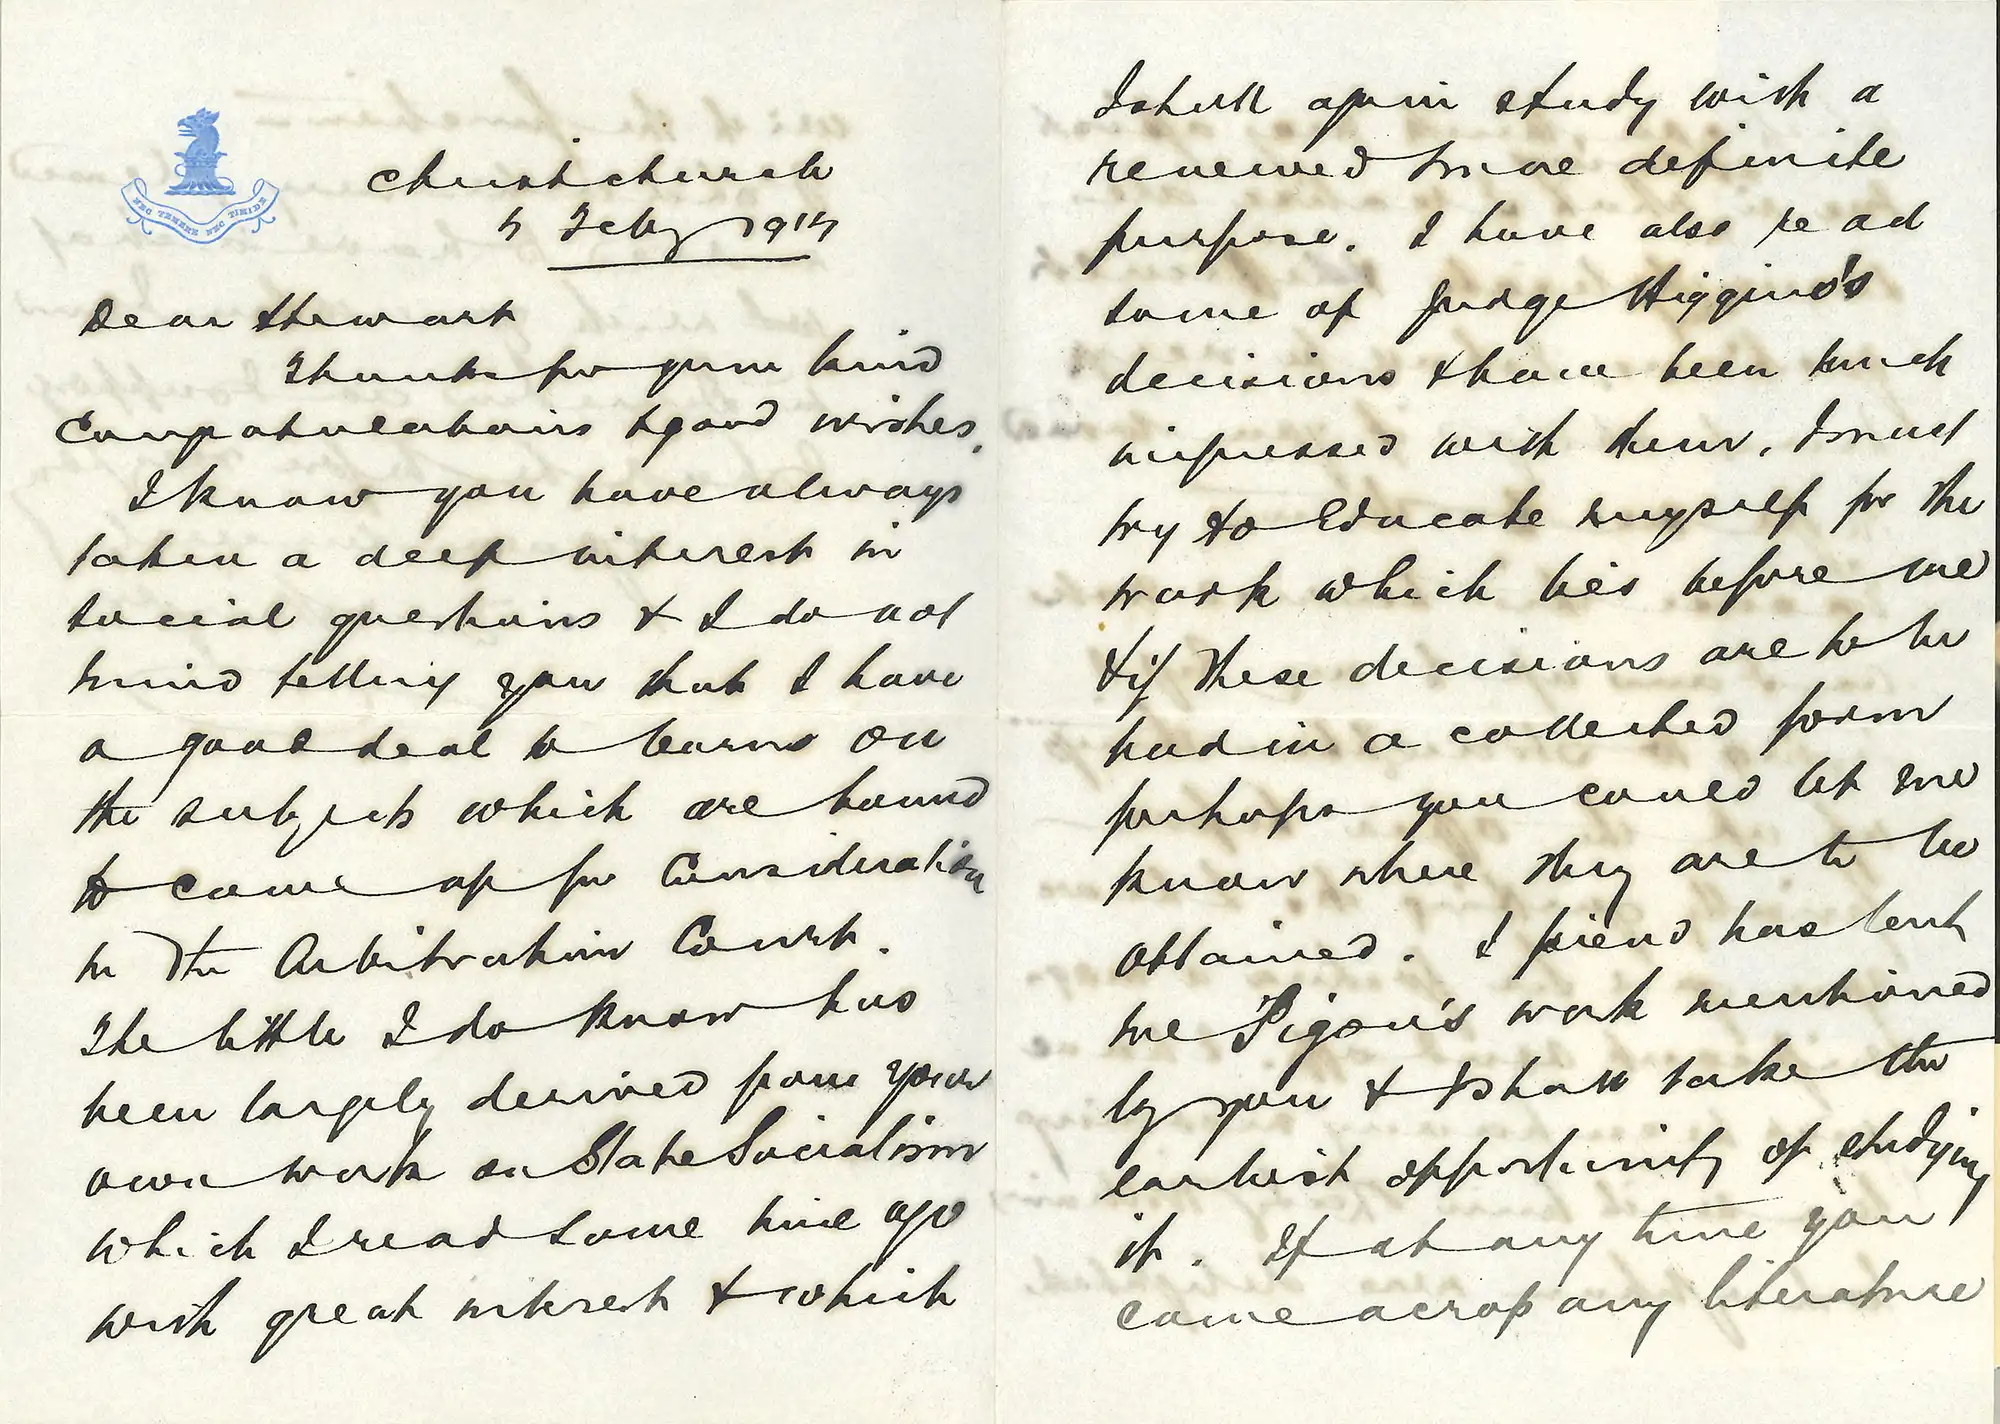 NEC TEMERE NEC TIMIDE
Christchurch
4 Feby 1914
Dear Stewart
Thanks for your kind
Congratulations & good wishes.
I know you have always
taken a deep interest in
social questions & I do not
mind telling you that I have
a good deal to learn on
the subjects which are bound
to come up for Consideration
in the Arbitration Court.
The little I do know has
been largely derived from your
own work on State Socialism
which I read some time ago
with great interest & which
I shall again study with a
renewed & more definite
purpose. I have also read
some of Judge Higgins's
decisions & have been much
impressed with them. I must
try to educate myself for the
work which lies before me
& if these decisions are to be
had in a collected form
perhaps you could let me
know where they are to be
obtained. A friend has lent
me Pigou's work mentioned
by you & I shall take the
earliest opportunity of studying
it. If at any time you
come across any literature